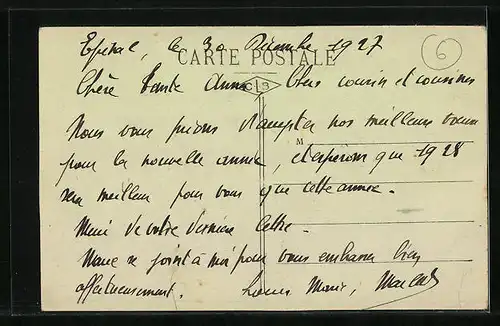 Epinal, le 30 Décembre 1927
CARTE POSTALE
Chère Tante Anna Chers cousin et cousines
C.L.S
Nous vous prions d'accepter nos meilleurs voeux
M
pour la nouvelle année, et espérons que 1928
sera meilleur pour vous que cette année.
Merci de votre dernière lettre.
Marie se joint à moi pour vous embrasser bien
affectueusement. Marie, Marcel
6